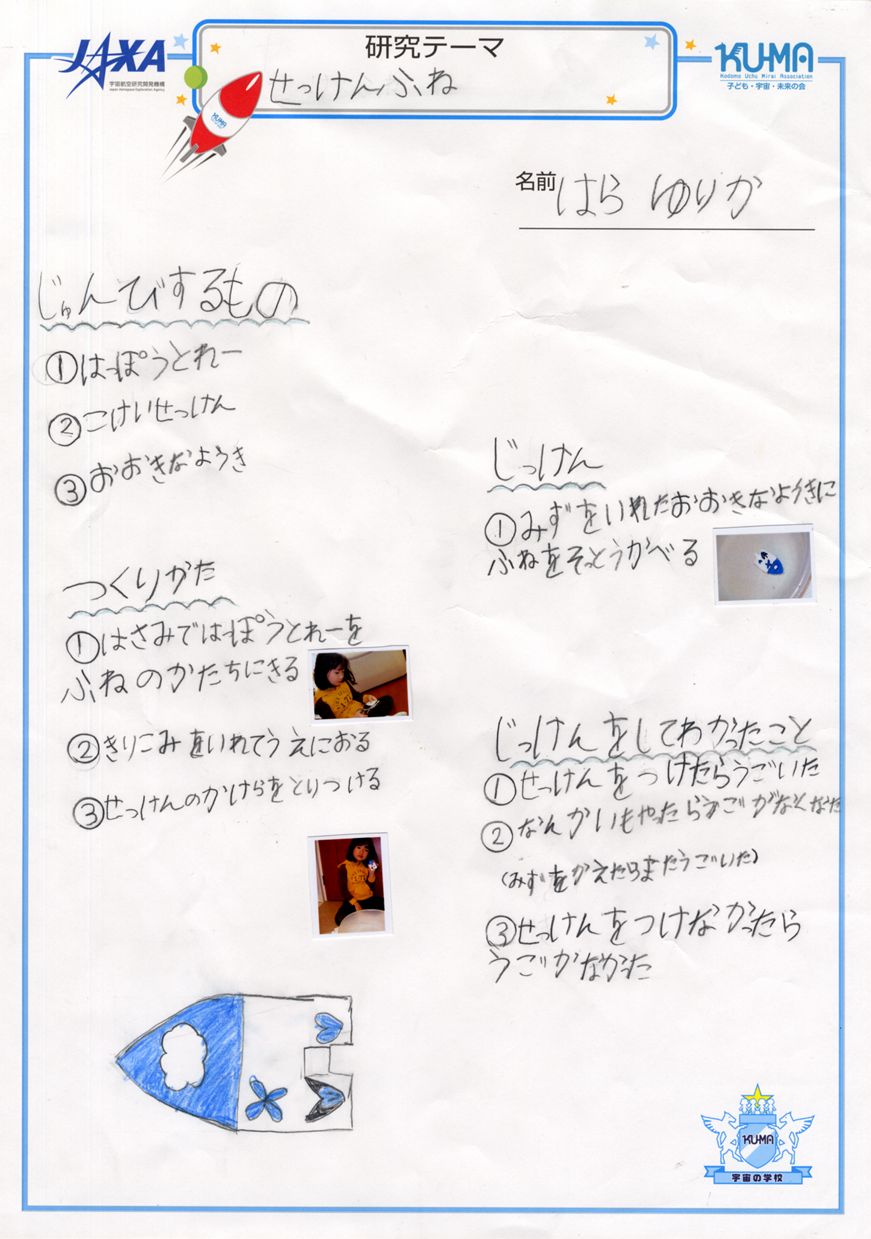 JAXA
宇宙航空研究開発機構
Japan Aerospace Exploration Agency
研究テーマ
せっけんふね
KU-MA
Kodomo Uchu Mirai Association
子ども・宇宙・未来の会
KU-MA
名前 はら ゆりか
じゅんびするもの
①はっぽうとれー
②こけいせっけん
③おおきなようき
つくりかた
①はさみではっぽうとれーを
ふねのかたちにきる
②きりこみをいれてうえにおる
③せっけんのかけらをとりつける
じっけん
①みずをいれたおおきなようきに
ふねをそっとうかべる
じっけんをしてわかったこと
①せっけんをつけたらうごいた
②なんかいもやったらうごがなくなった
(みずをかえたらまたうごいた)
③せっけんをつけなかったら
うごかなかった
KU-MA
宇宙の学校